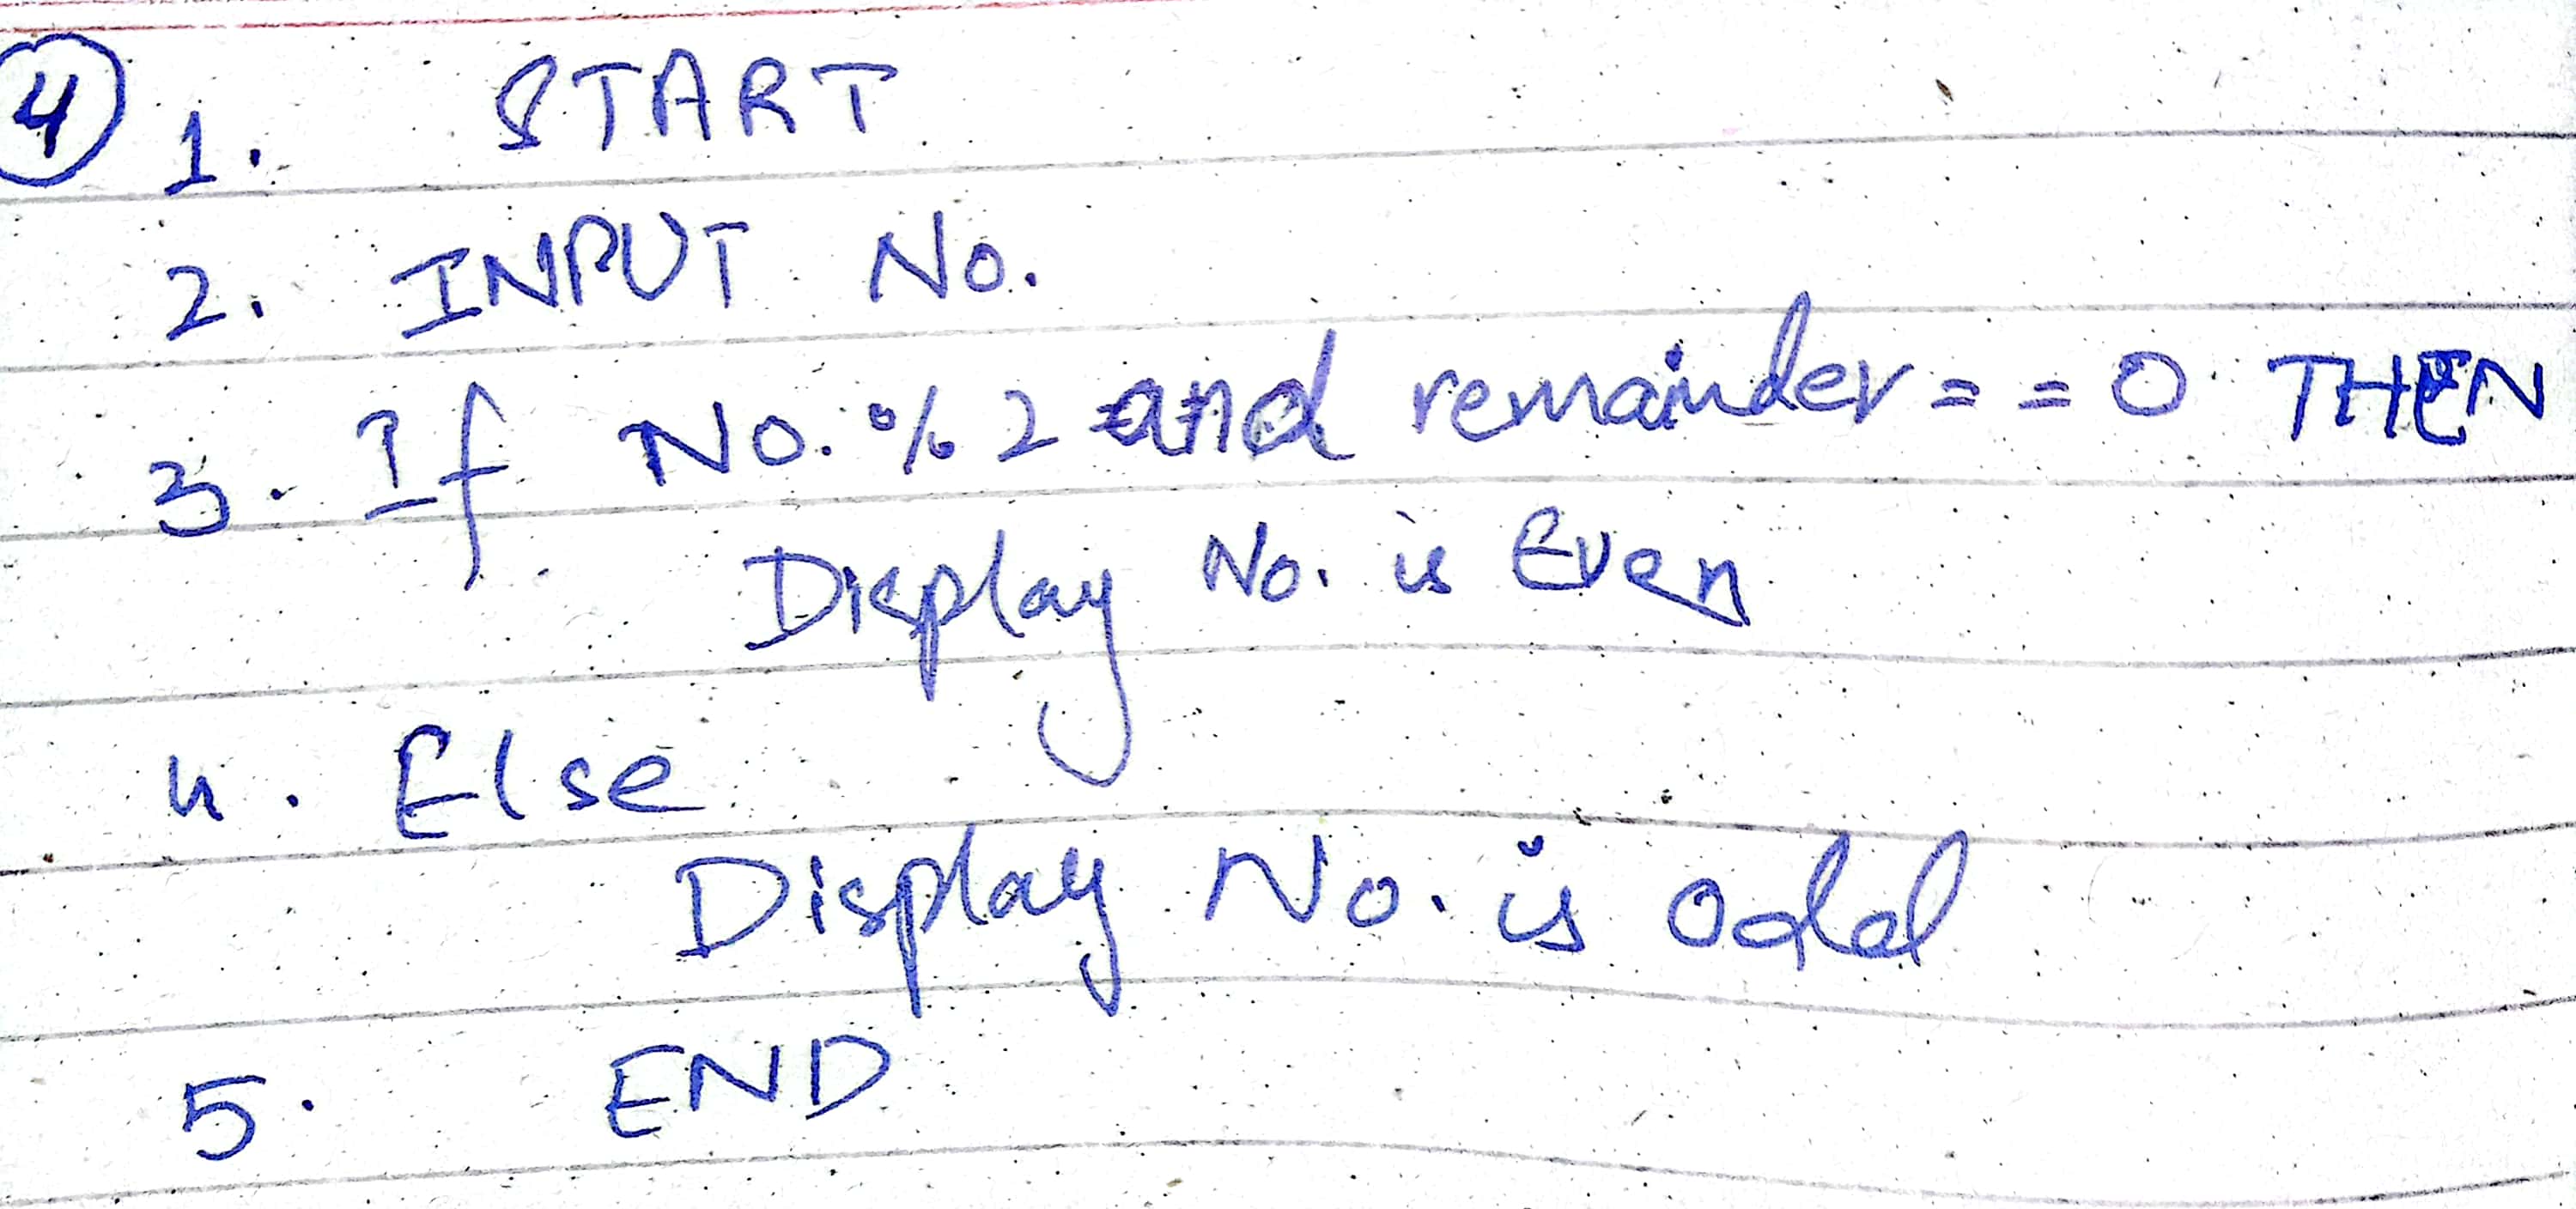 4 1. START
2. INPUT No.
3. If No. % 2 and remainder = = 0 THEN
Display No. is Even
4. Else
Display No. is odd
5. END